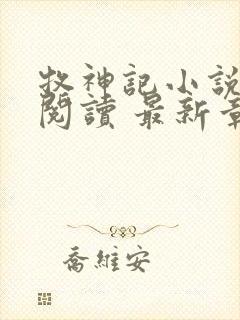 牧神記小說
閱讀 最新章
喬維安